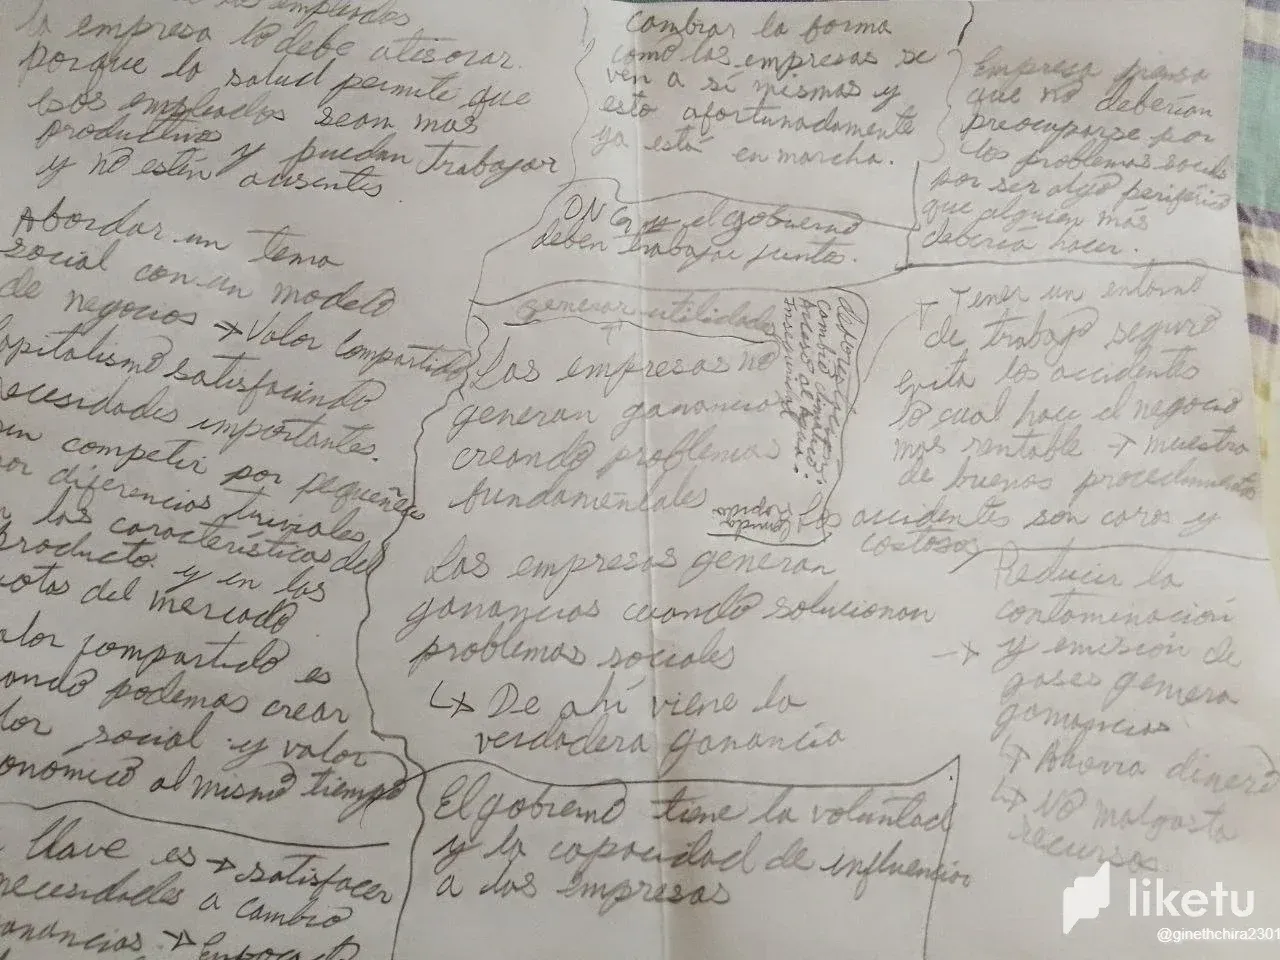 la empresa lo debe atesorar.
porque la salud permite que
esos empleados sean mas
productivos y puedan trabajar
y no estén ausentes
Abordar un tema
social con un modelo
de negocios → Valor Compartido
capitalismo satisfaciendo
necesidades importantes.
sin competir por pequeñas
por diferencias triviales
en las características del
producto. y en las
cuotas del mercado
valor compartido es
cuando podemos crear
valor social y valor
economico al mismo tiempo
llave es → satisfacer
necesidades a cambio
ganancias. →
Cambiar la forma
como las empresas se
ven a sí mismas y
esto afortunadamente
ya está en marcha.
Empresa piensa
que no deberían
preocuparse por
los problemas sociales
por ser algo periférico
que alguien más
debería hacer.
y el gobierno
deben trabajar juntos.
generar utilidades
↑
Las empresas no
generan ganancias
creando problemas
fundamentales
Cambio climático.
Acceso al Agua.
Inseguridad
Comida
rapida
Las empresas generan
ganancias cuando solucionan
problemas sociales
↳ De ahí viene la
verdadera ganancia
El gobierno tiene la voluntad
y la capacidad de influenciar
a las empresas
→ Tener un entorno
de trabajo seguro
evita los accidentes
lo cual hace el negocio
mas rentable → muestra
de buenos procedimientos
Los accidentes son caros y
costosos
Reducir la
contaminación
→ y emisión de
gases genera
ganancias
↳ Ahorra dinero
↳ No malgasta
recursos.
liketu
@ginethchira2301